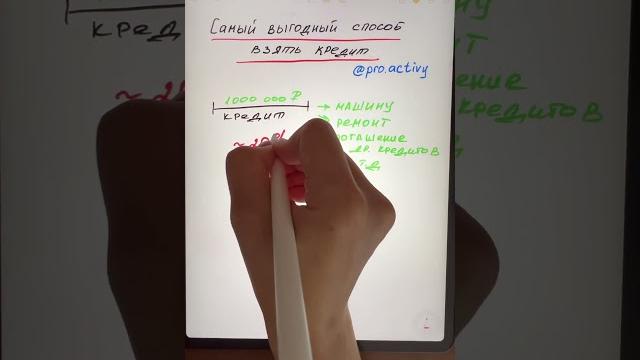 Самый выгодный способ
взять кредит
@pro.activy
1000 000 ₽
кредит
→ машину
→ ремонт
погашение
др. кредитов